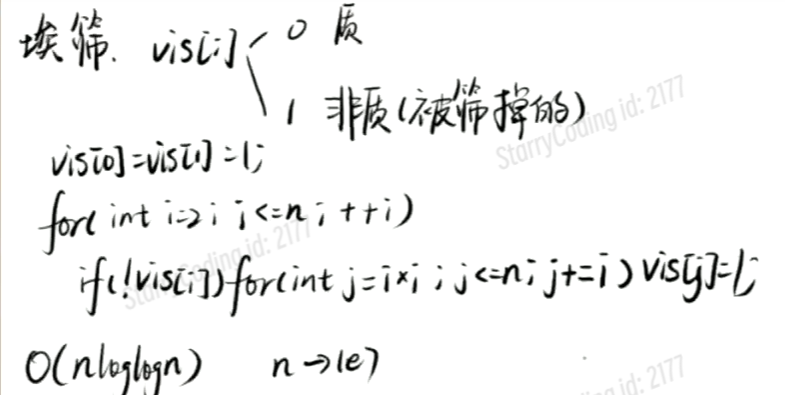 埃筛. vis[i] 0 质
1 非质(被筛掉的)
StarryCoding id: 2177
vis[0]=vis[1]=1;
for(int i=2; i<=n; ++i)
StarryCoding id: 2177
if(!vis[i])for(int j=i×i; j<=n; j+=i) vis[j]=1;
O(nloglogn) n→1e7
ng id: 2177